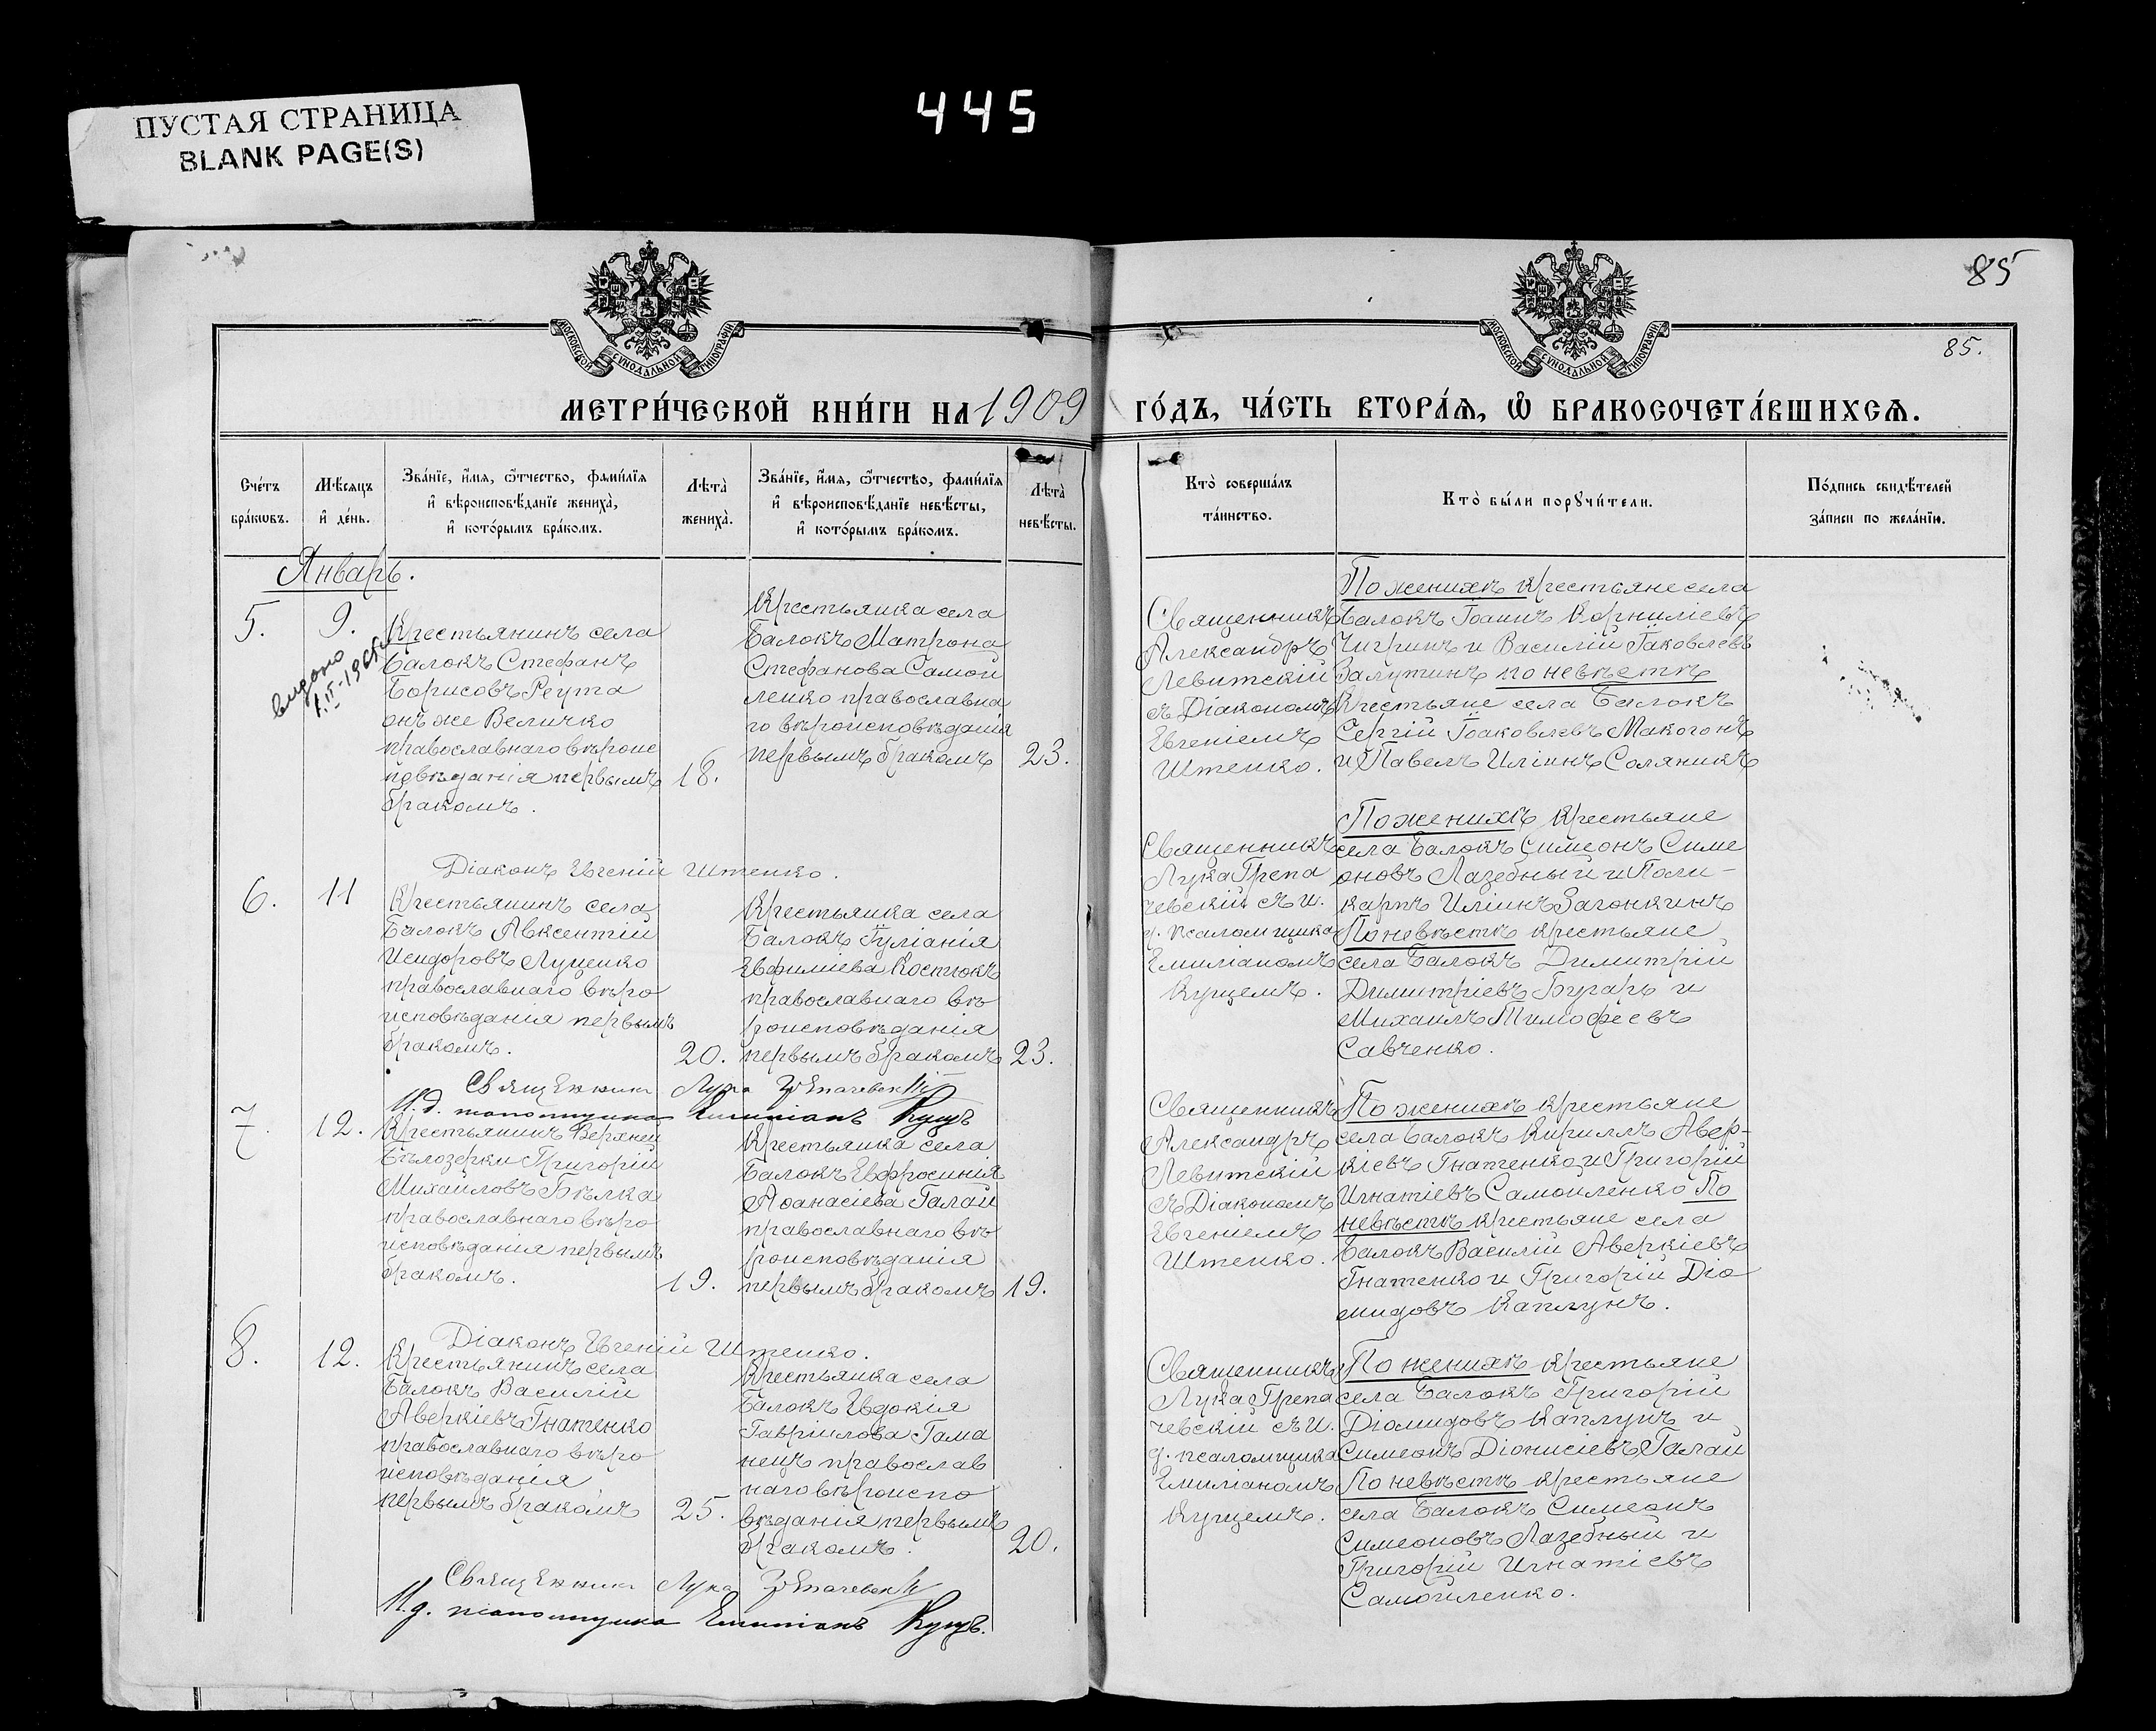 ПУСТАЯ СТРАНИЦА
BLANK PAGE(S)
445
85
85.
МОСКОВСКОЙ СѴНОДАЛЬНОЙ ТИПОГРАФІИ
МОСКОВСКОЙ СѴНОДАЛЬНОЙ ТИПОГРАФІИ
МЕТРИ́ЧЕСКОЙ КНИ́ГИ НА 1909 ГО́ДЪ, ЧА́СТЬ ВТОРА́Я, Ѽ БРАКОСОЧЕТА́ВШИХСЯ.
Сче́тъ
бра́ковъ.
Мѣ́сяцъ
и҆ де́нь.
Зва́нїе, и҆́мя, ѻ҆́тчество, фами́лїя
и҆ вѣроисповѣ́данїе жениха̀,
и҆ кото́рымъ бра́комъ.
Лѣта̀
жениха̀.
Зва́нїе, и҆́мя, ѻ҆́тчество, фами́лїя
и҆ вѣроисповѣ́данїе невѣ́сты,
и҆ кото́рымъ бра́комъ.
Лѣта̀
невѣ́сты.
Кто̀ соверша́лъ
та́инство.
Кто̀ бы́ли порꙋчи́тели.
По́дпись свидѣ́телей
за́писи по жела́нїю.
Январь.
5.
9.
видано
Крестьянинъ села
Балокъ Стефанъ
Борисовъ Реута
онъ же Величко
православнаго вѣроис
повѣданія первымъ
бракомъ.
18.
Крестьянка села
Балокъ Матрона
Стефанова Самой
ленко православна
го вѣроисповѣданія
первымъ бракомъ
23.
Священникъ
Александръ
Левитскій
съ Діакономъ
Евгеніемъ
Штенко.
По женихѣ крестьяне села
Балокъ Іоаннъ Корниліевъ
Чигринъ и Василій Іаковлевъ
Залутинъ по невѣстѣ
Крестьяне села Балокъ
Сергій Іоаковлевъ Макогонъ
и Павелъ Иліинъ Соляникъ
Діаконъ Евгеній Штенко.
6.
11
Крестьянинъ села
Балокъ Авксентій
Исидоровъ Луценко
православнаго вѣро
исповѣданія первымъ
бракомъ.
20.
Крестьянка села
Балокъ Іуліанія
Евфиміева Костюкъ
православнаго вѣ
роисповѣданія
первымъ бракомъ
23.
Священникъ
Лука Грепа
чевскій съ и.
д. псаломщика
Емиліаномъ
Куцемъ.
По женихѣ крестьяне
села Балокъ Симеонъ Симе
оновъ Лазебный и Поли-
карпъ Иліинъ Загонкинъ
По невѣстѣ крестьяне
села Балокъ Димитрій
Димитріевъ Бугарь и
Михаилъ Тимофеевъ
Савченко.
Священникъ Лука Грепачевскій
И.д. псаломщика Емиліанъ Куцъ
7.
12.
Крестьянинъ Верхней
Бѣлозерки Григорій
Михайловъ Бѣлка
православнаго вѣро
исповѣданія первымъ
бракомъ.
19.
Крестьянка села
Балокъ Евфросинія
Аѳанасіева Галай
православнаго вѣ
роисповѣданія
первымъ бракомъ
19.
Священникъ
Александръ
Левитскій
съ Діакономъ
Евгеніемъ
Штенко.
По женихѣ крестьяне
села Балокъ Кириллъ Авер-
кіевъ Гнатенко и Григорій
Игнатіевъ Самойленко По
невѣстѣ крестьяне села
Балокъ Василій Аверкіевъ
Гнатенко и Григорій Діо
мидовъ Каплунъ.
Діаконъ Евгеній Штенко.
8.
12.
Крестьянинъ села
Балокъ Василій
Аверкіевъ Гнатенко
православнаго вѣро
исповѣданія
первымъ бракомъ
25.
Крестьянка села
Балокъ Евдокія
Гавріилова Гама
нецъ православ
наго вѣроиспо
вѣданія первымъ
бракомъ.
20.
Священникъ
Лука Грепа
чевскій съ И.
д. псаломщика
Емиліаномъ
Куцемъ.
По женихѣ крестьяне
села Балокъ Григорій
Діомидовъ Каплунъ и
Симеонъ Діонисіевъ Галай
По невѣстѣ крестьяне
села Балокъ Симеонъ
Симеоновъ Лазебный и
Григорій Игнатіевъ
Самойленко.
Священникъ Лука Грепачевскій
И.д. псаломщика Емиліанъ Куцъ.